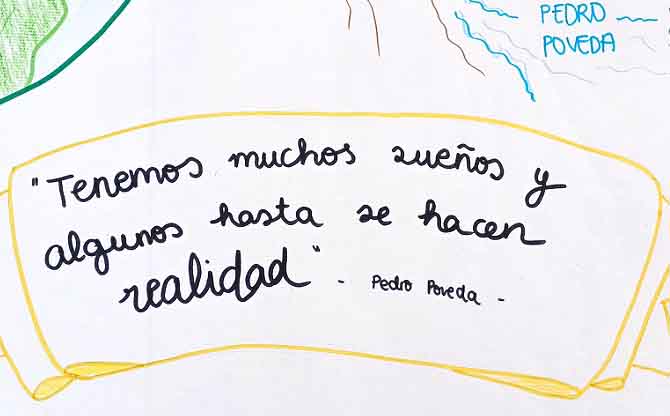 PEDRO
POVEDA
"Tenemos muchos sueños y
algunos hasta se hacen
realidad"
- Pedro Poveda -